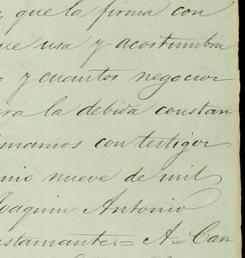 que la firma con
que usa y acostumbra
y cuantos negocios
la debida constan
firmamos con testigos
nio nueve de mil
Joaquin Antonio
ustamante.= A= Can